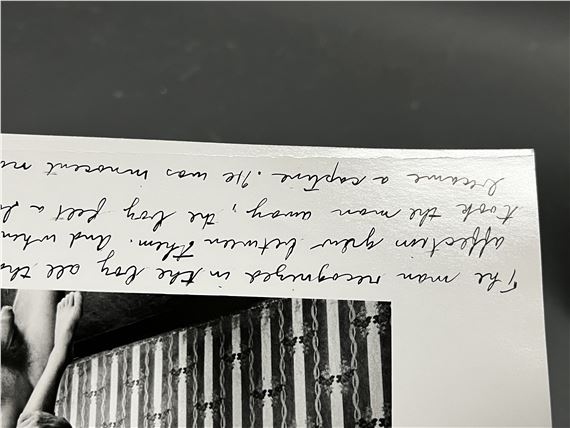 "The man recognized in the boy all
affection grew between them. And when
took the man away, the boy felt a
became a captive. He was innocent